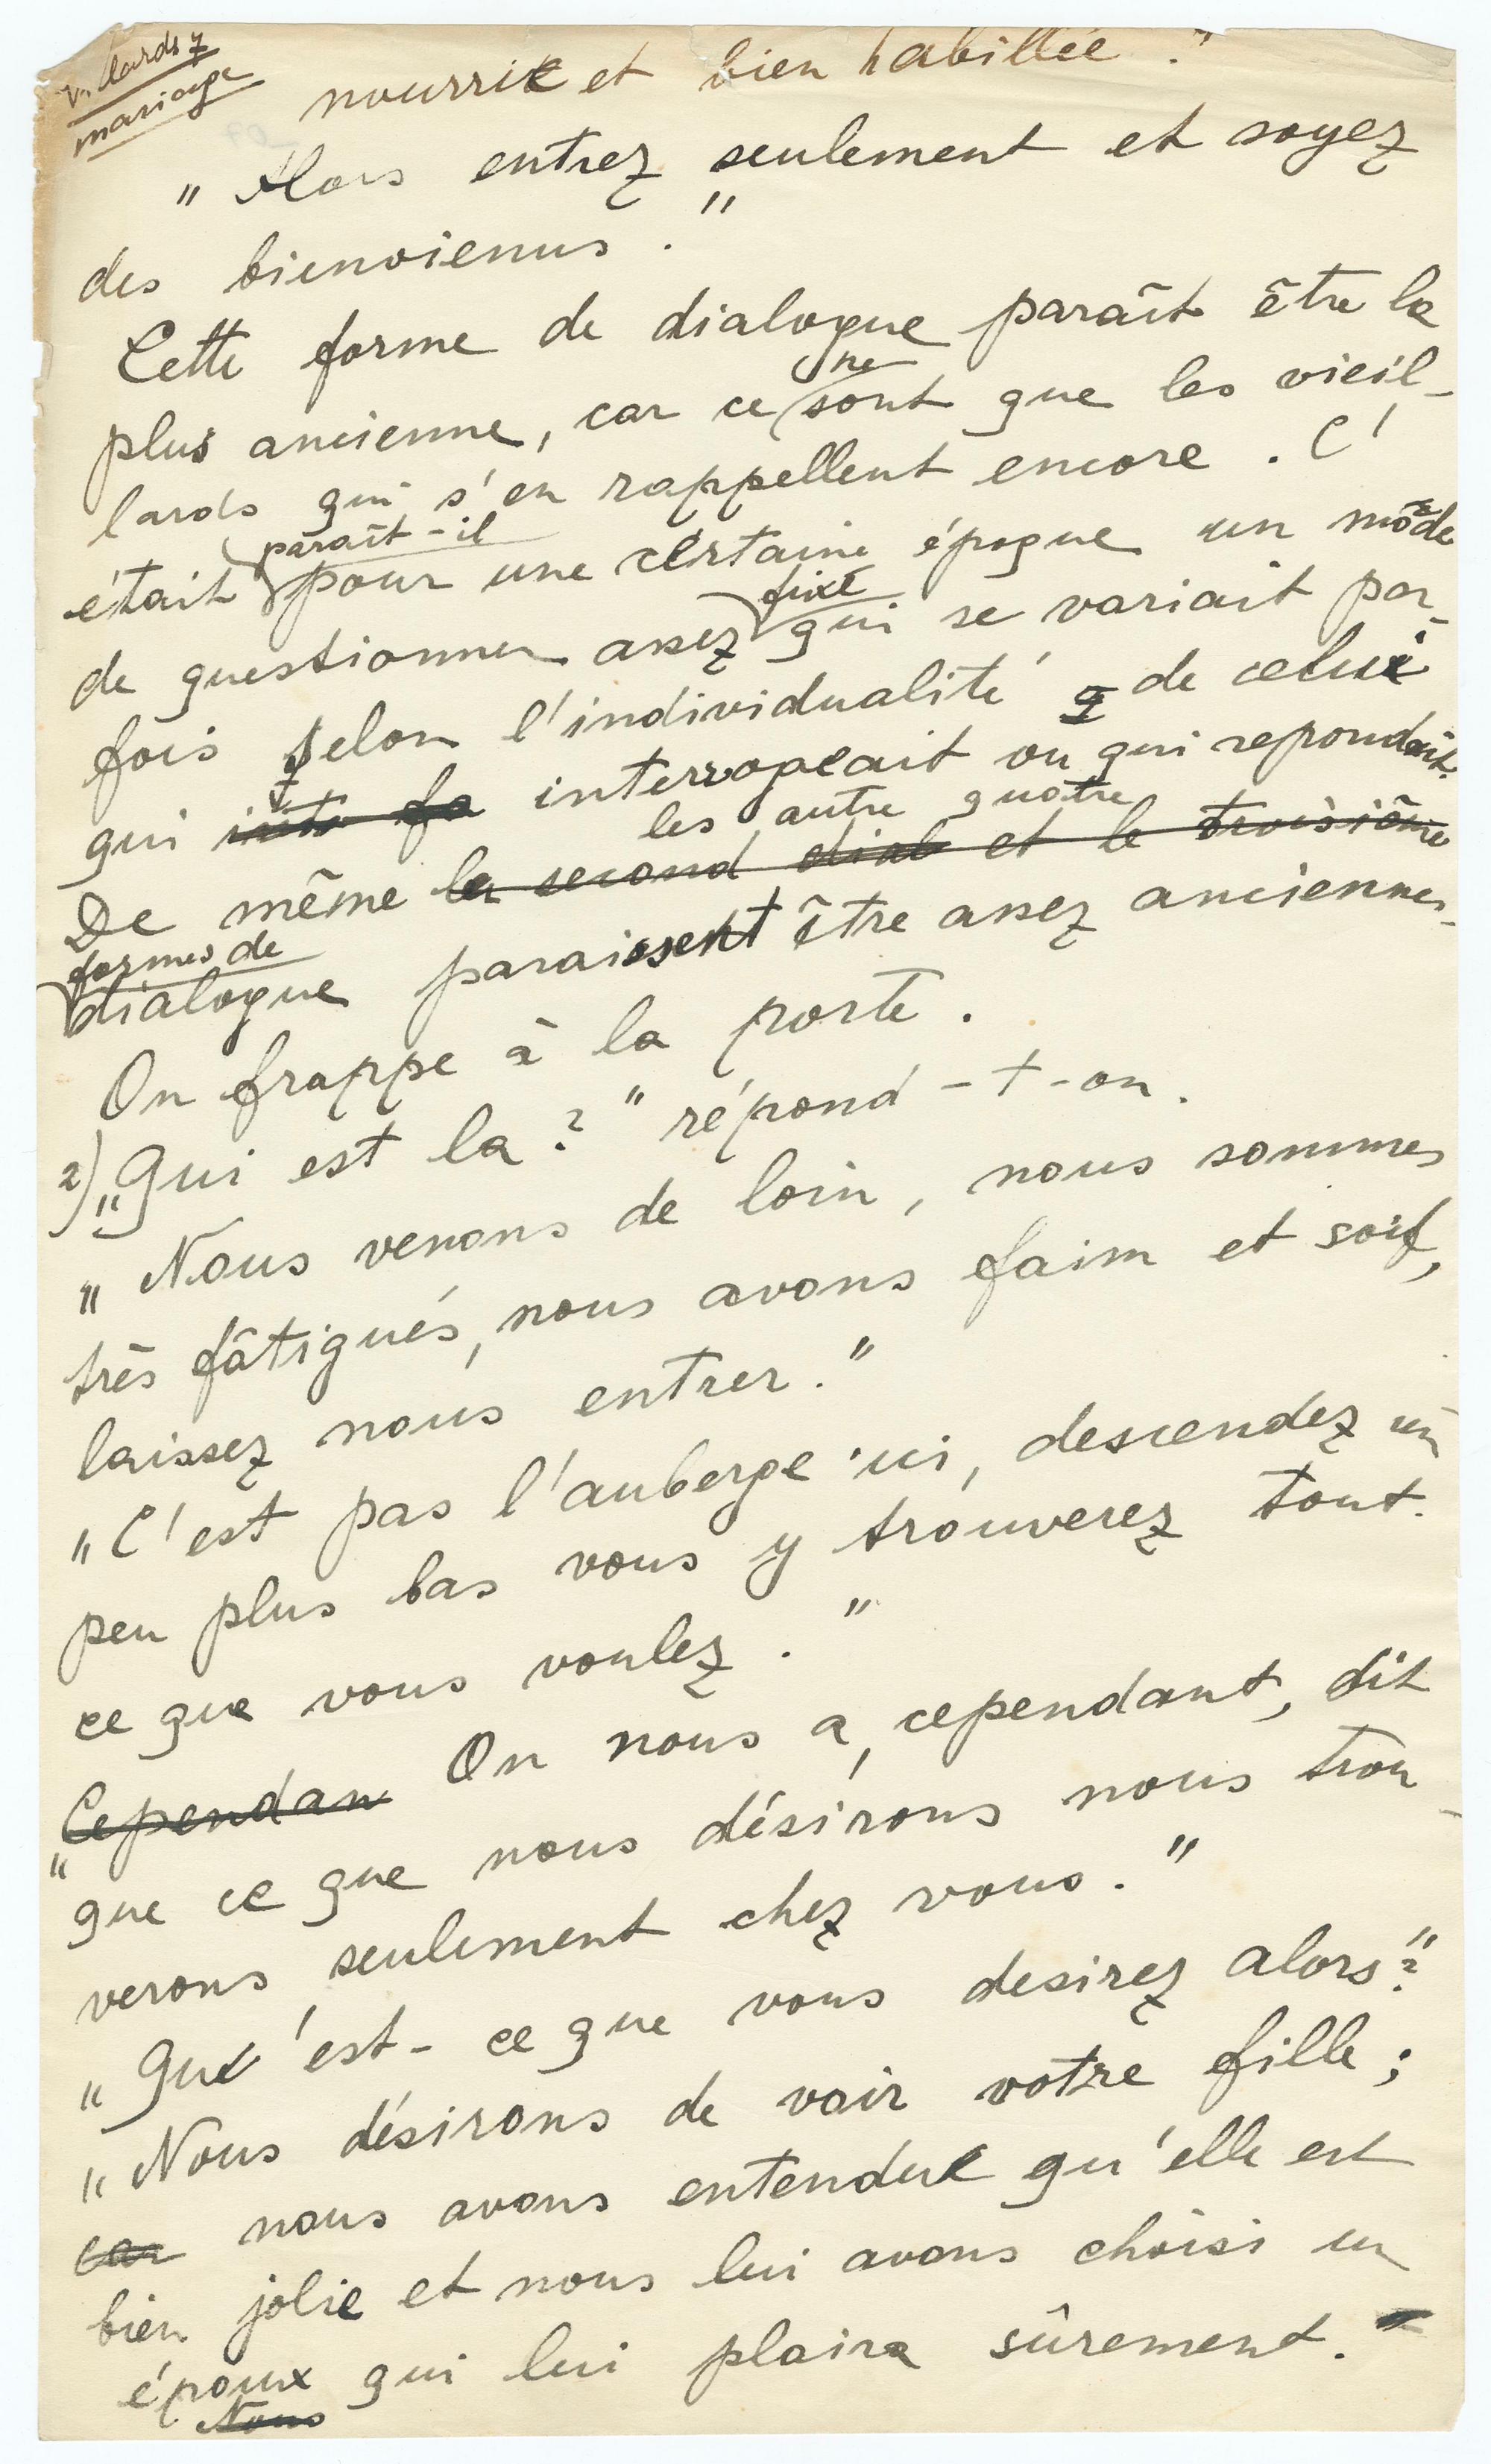 mariage
nourrie et bien habillée ?"
" Alors entrez seulement et soyez
des bienvienus . "
Cette forme de dialogue paraît être la
plus ancienne, car ce ne sont que les vieil-
lards qui s'en rappellent encore . C'
était paraît-il pour une certaine époque un mode
de questionner assez fixé qui se variait par-
fois selon l'individualité de celui
qui interrogeait ou qui repondait.
De même le second dial et le troisième les autre quatre
formes de dialogue paraissent être assez anciennes.
On frappe à la porte .
2) „Qui est la ? " répond-t-on.
„ Nous venons de loin, nous sommes
très fâtigués, nous avons faim et soif,
laissez nous entrer."
„C'est pas l'auberge ici, descendez un
peu plus bas vous y trouverez tout.
ce que vous voulez . "
„Cependan On nous a, cependant, dit
que ce que nous désirons nous trou-
verons seulement chez vous . "
„ Qu'est-ce que vous desirez alors ?"
„ Nous désirons de voir votre fille ;
car nous avons entendue qu'elle est
bien jolie et nous lui avons choisi un
époux qui lui plaira sûrement.
Nous